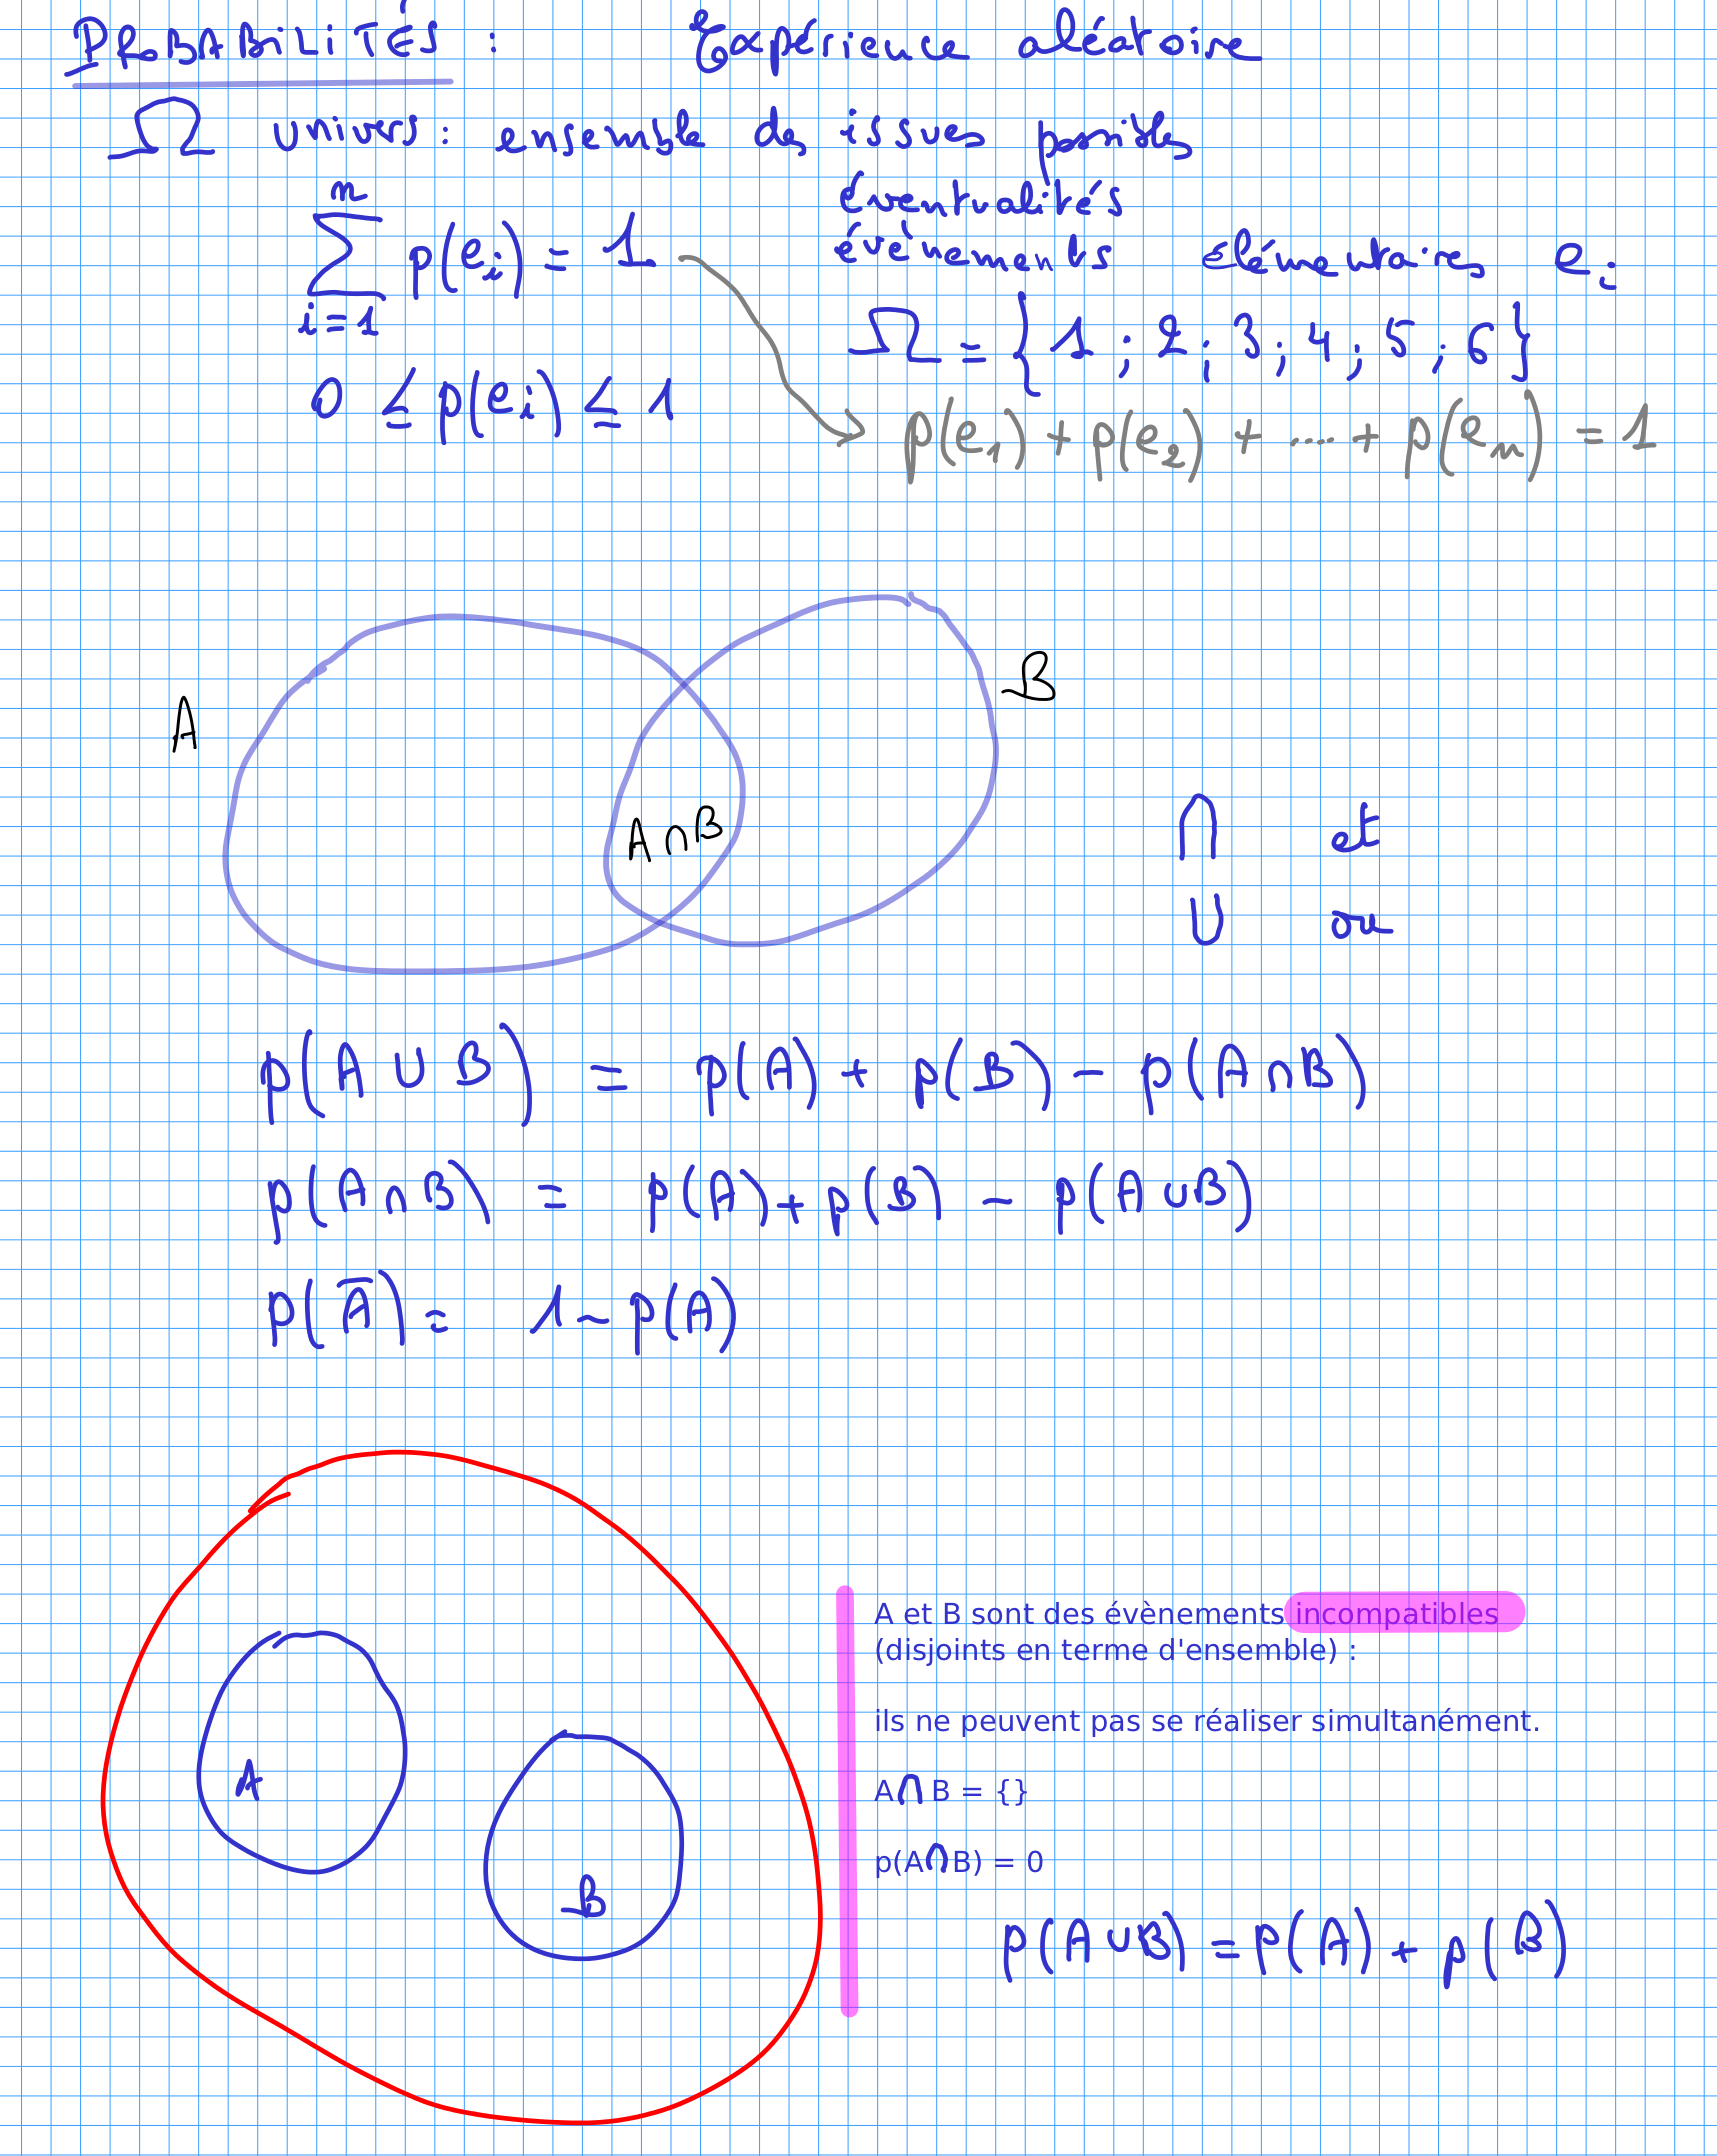 PROBABILITÉS : Expérience aléatoire
Ω univers : ensemble des issues possibles
éventualités
évènements élémentaires e_i
∑_{i=1}^{n} p(e_i) = 1.
Ω = { 1 ; 2 ; 3 ; 4 ; 5 ; 6 }
0 ≤ p(e_i) ≤ 1
p(e_1) + p(e_2) + ..... + p(e_n) = 1
A
B
A ∩ B
∩ et
∪ ou
p(A ∪ B) = p(A) + p(B) - p(A ∩ B)
p(A ∩ B) = p(A) + p(B) - p(A ∪ B)
p(A̅) = 1 - p(A)
A
B
A et B sont des évènements incompatibles
(disjoints en terme d'ensemble) :
ils ne peuvent pas se réaliser simultanément.
A ∩ B = {}
p(A∩B) = 0
p(A ∪ B) = p(A) + p(B)